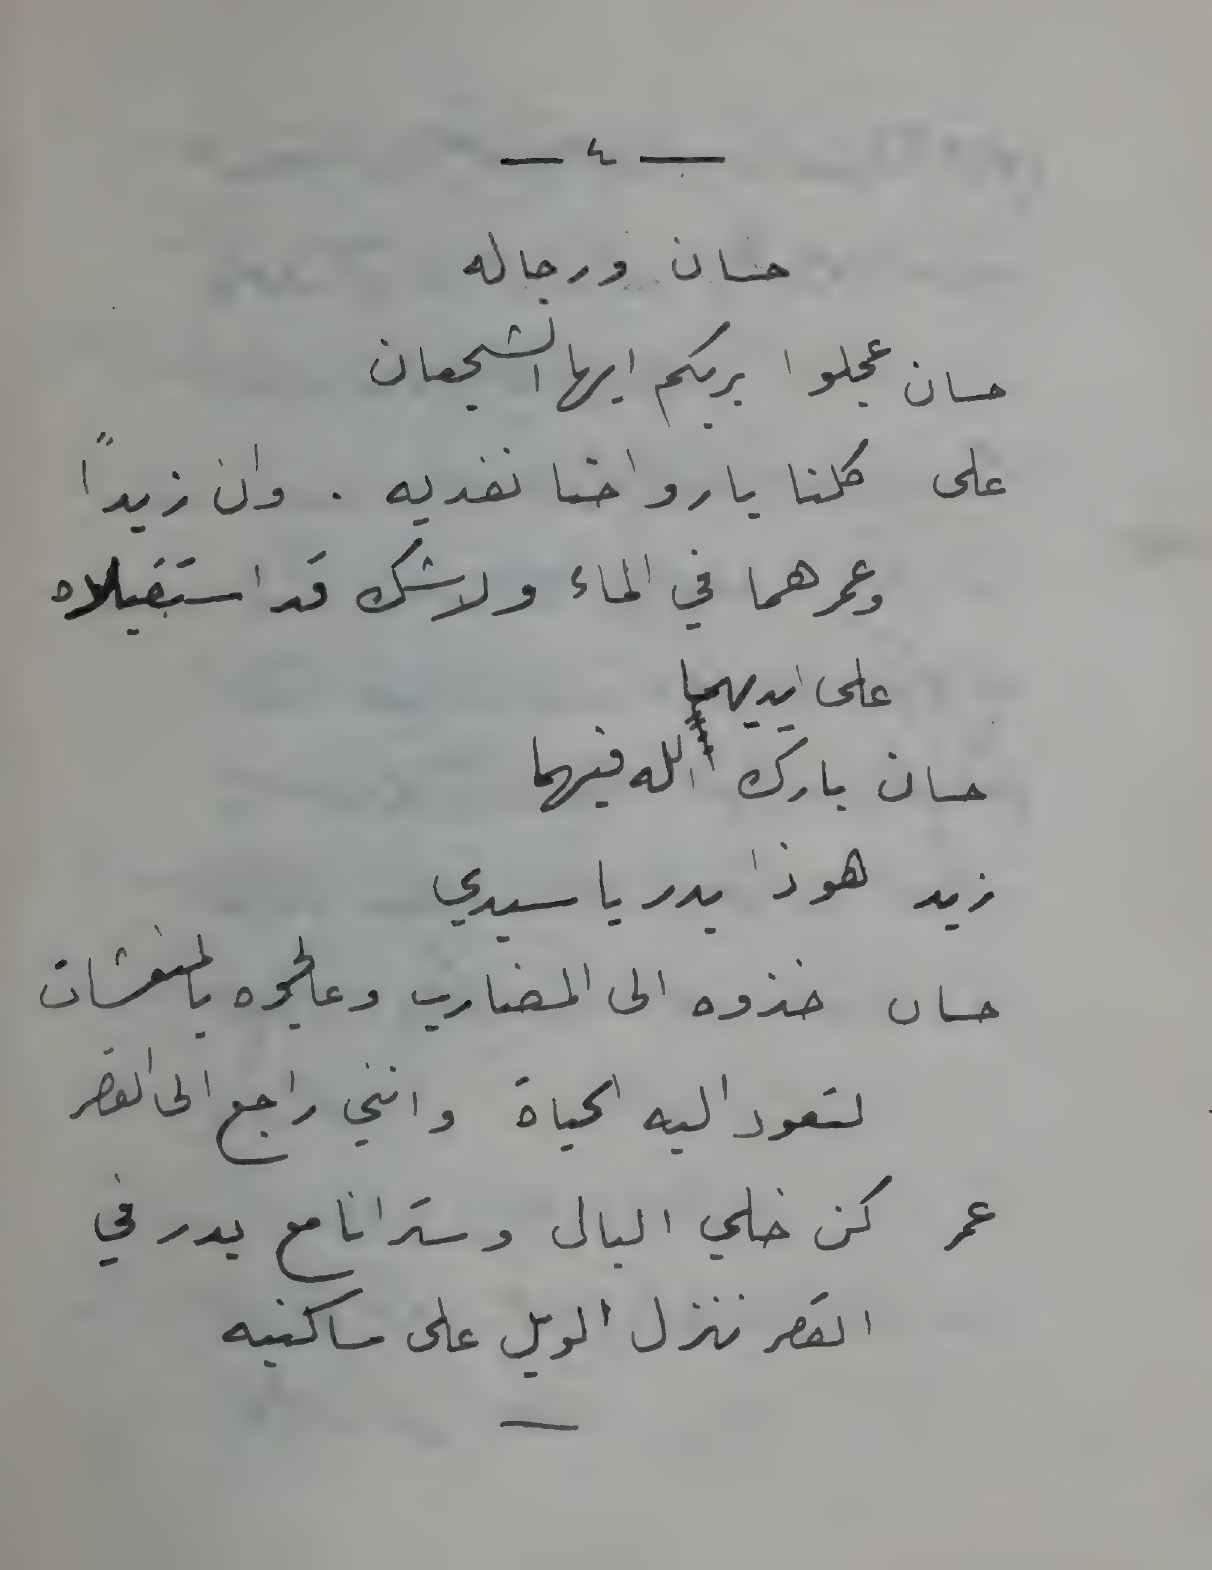 — ٤ —
حسان ورجاله
حسان عجلوا بربكم ايها الشجعان
على كلنا بارواحنا نفديه . وان زيداً
وعمر هما في الماء ولاشك قد استقبلاه
على ايديهما
حسان بارك الله فيهما
زيد هوذا بدر يا سيدي
حسان خذوه الى المضارب وعالجوه بالمنعشات
لتعود اليه الحياة وانني راجع الى القصر
عمر كن خلي البال وستر انا مع بدر في
القصر ننزل الويل على ساكنيه